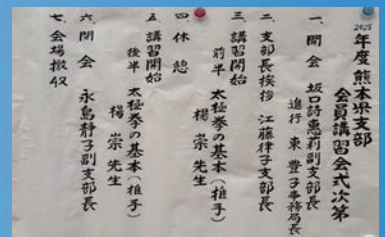 2025
年度 熊本県支部
会員講習会式次第
一、開会 坂口詩恵莉副支部長
進行 東 豊子事務局長
二、支部長挨拶 江藤律子支部長
三、講習開始
前半 太極拳の基本(推手)
楊 崇 先生
四、休 憩
五、講習開始
後半 太極拳の基本(推手)
楊 崇 先生
六、閉会 永島静子副支部長
七、会場撤収